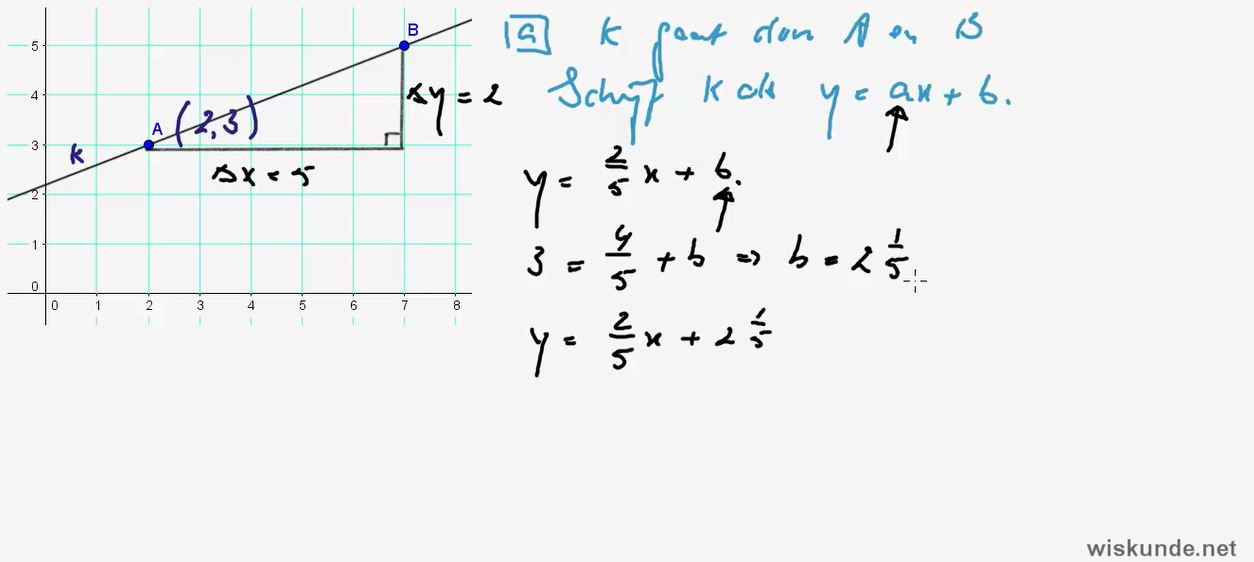 a k gaat door A en B
Schrijf k als y = ax + b.
y = 2/5 x + b.
3 = 4/5 + b => b = 2 1/5
y = 2/5 x + 2 1/5
B
5
4
Δy = 2
A (2,3)
3
k
Δx = 5
2
1
0
0 1 2 3 4 5 6 7 8
wiskunde.net